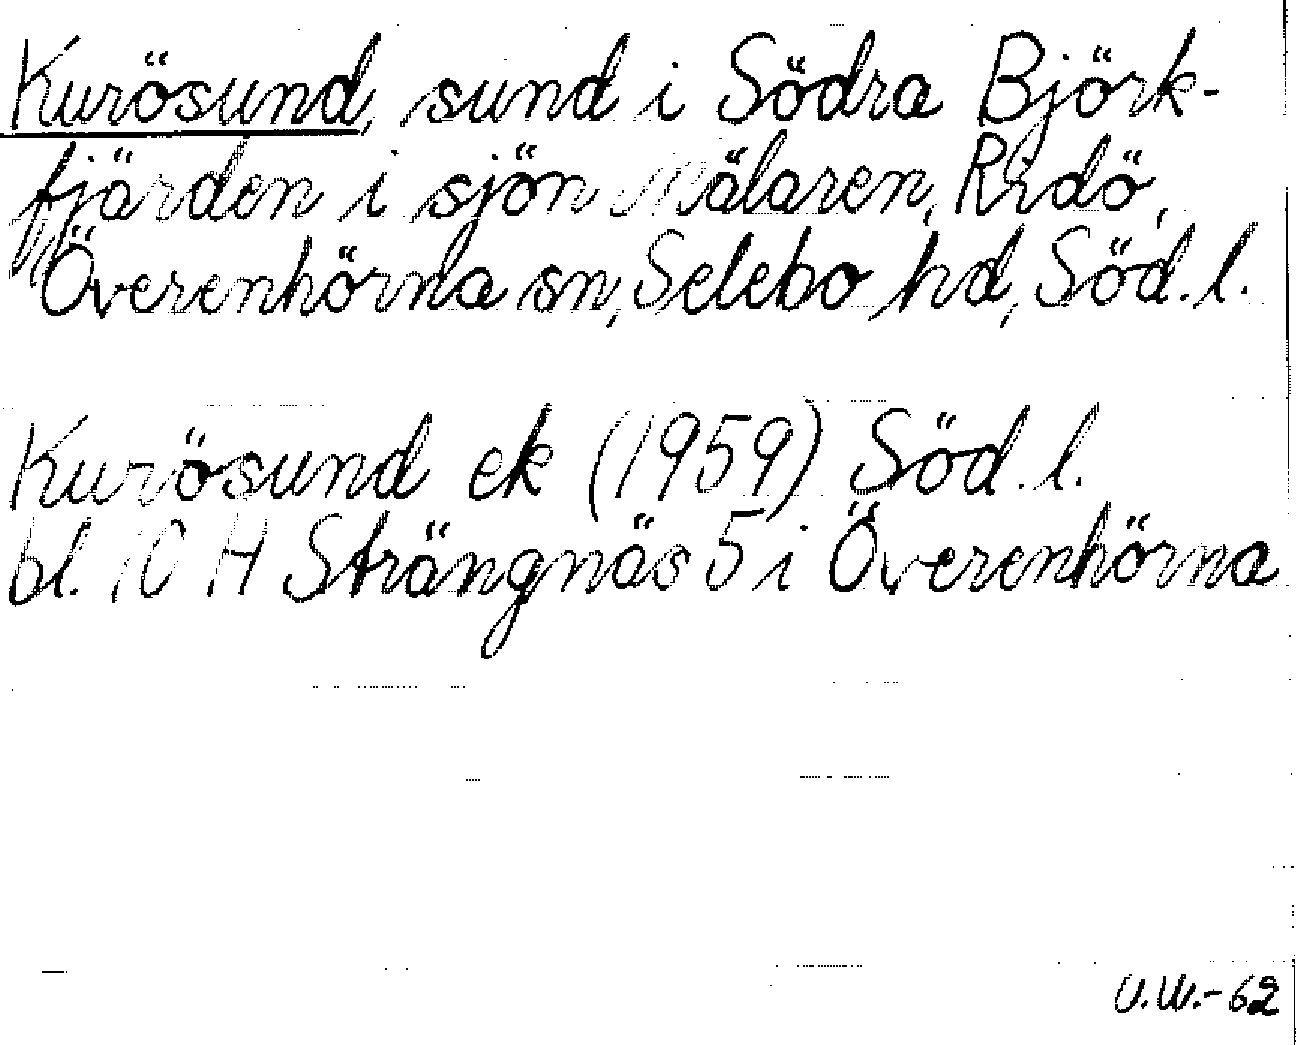 Kurösund, sund i Södra Björk-
fjärden i sjön Mälaren, Ridö,
Överenhörna sn, Selebo hd, Söd. l.
Kurösund ek (1959) Söd. l.
bl. 10 H Strängnäs 5 i Överenhörna
U.W.-62